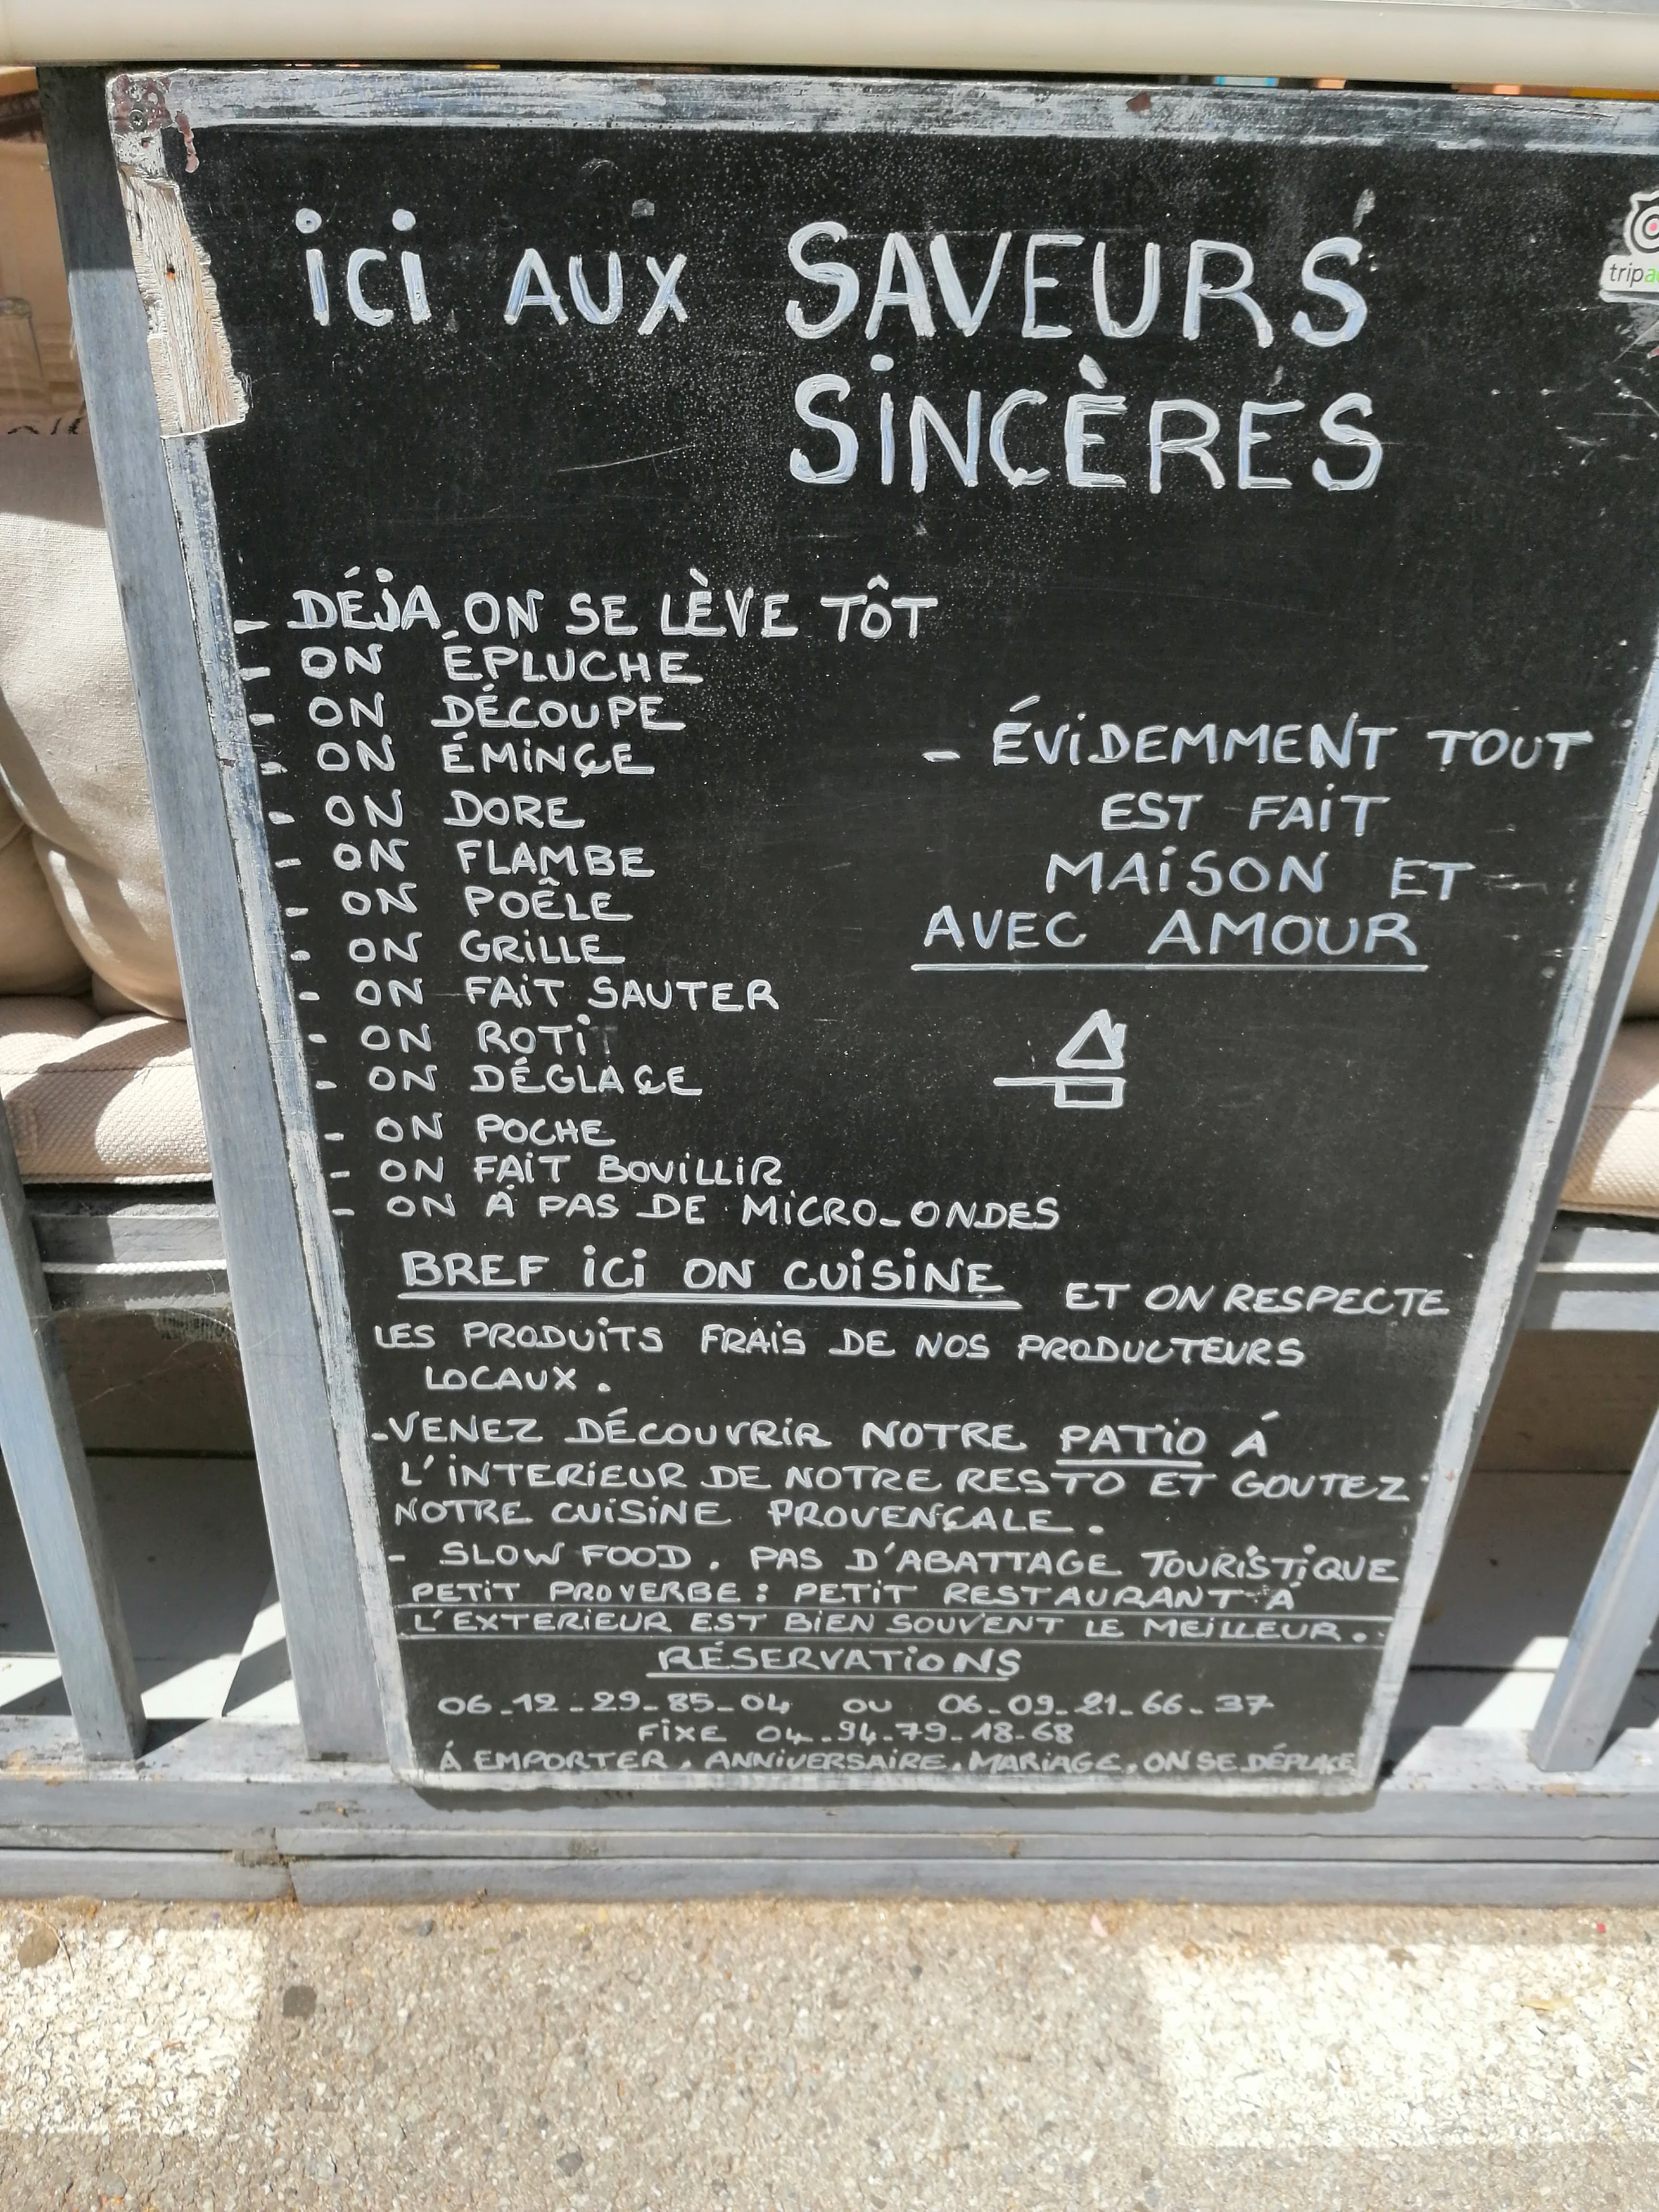 ICI AUX SAVEURS
SINCÈRES
- DÉJA ON SE LÈVE TÔT
- ON ÉPLUCHE
- ON DÉCOUPE
- ON ÉMINÇE
- ON DORE
- ON FLAMBE
- ON POÊLE
- ON GRILLE
- ON FAIT SAUTER
- ON ROTI
- ON DÉGLAÇE
- ON POCHE
- ON FAIT BOUILLIR
- ON A PAS DE MICRO-ONDES
- ÉVIDEMMENT TOUT
EST FAIT
MAISON ET
AVEC AMOUR
BREF ICI ON CUISINE ET ON RESPECTE
LES PRODUITS FRAIS DE NOS PRODUCTEURS
LOCAUX.
- VENEZ DÉCOUVRIR NOTRE PATIO Á
L'INTERIEUR DE NOTRE RESTO ET GOUTEZ
NOTRE CUISINE PROVENÇALE.
- SLOW FOOD. PAS D'ABATTAGE TOURISTIQUE
PETIT PROVERBE : PETIT RESTAURANT Á
L'EXTERIEUR EST BIEN SOUVENT LE MEILLEUR.
RÉSERVATIONS
06-12-29-85-04 OU 06-09-21-66-37
FIXE 04-94-79-18-68
Á EMPORTER. ANNIVERSAIRE. MARIAGE. ON SE DÉPLACE